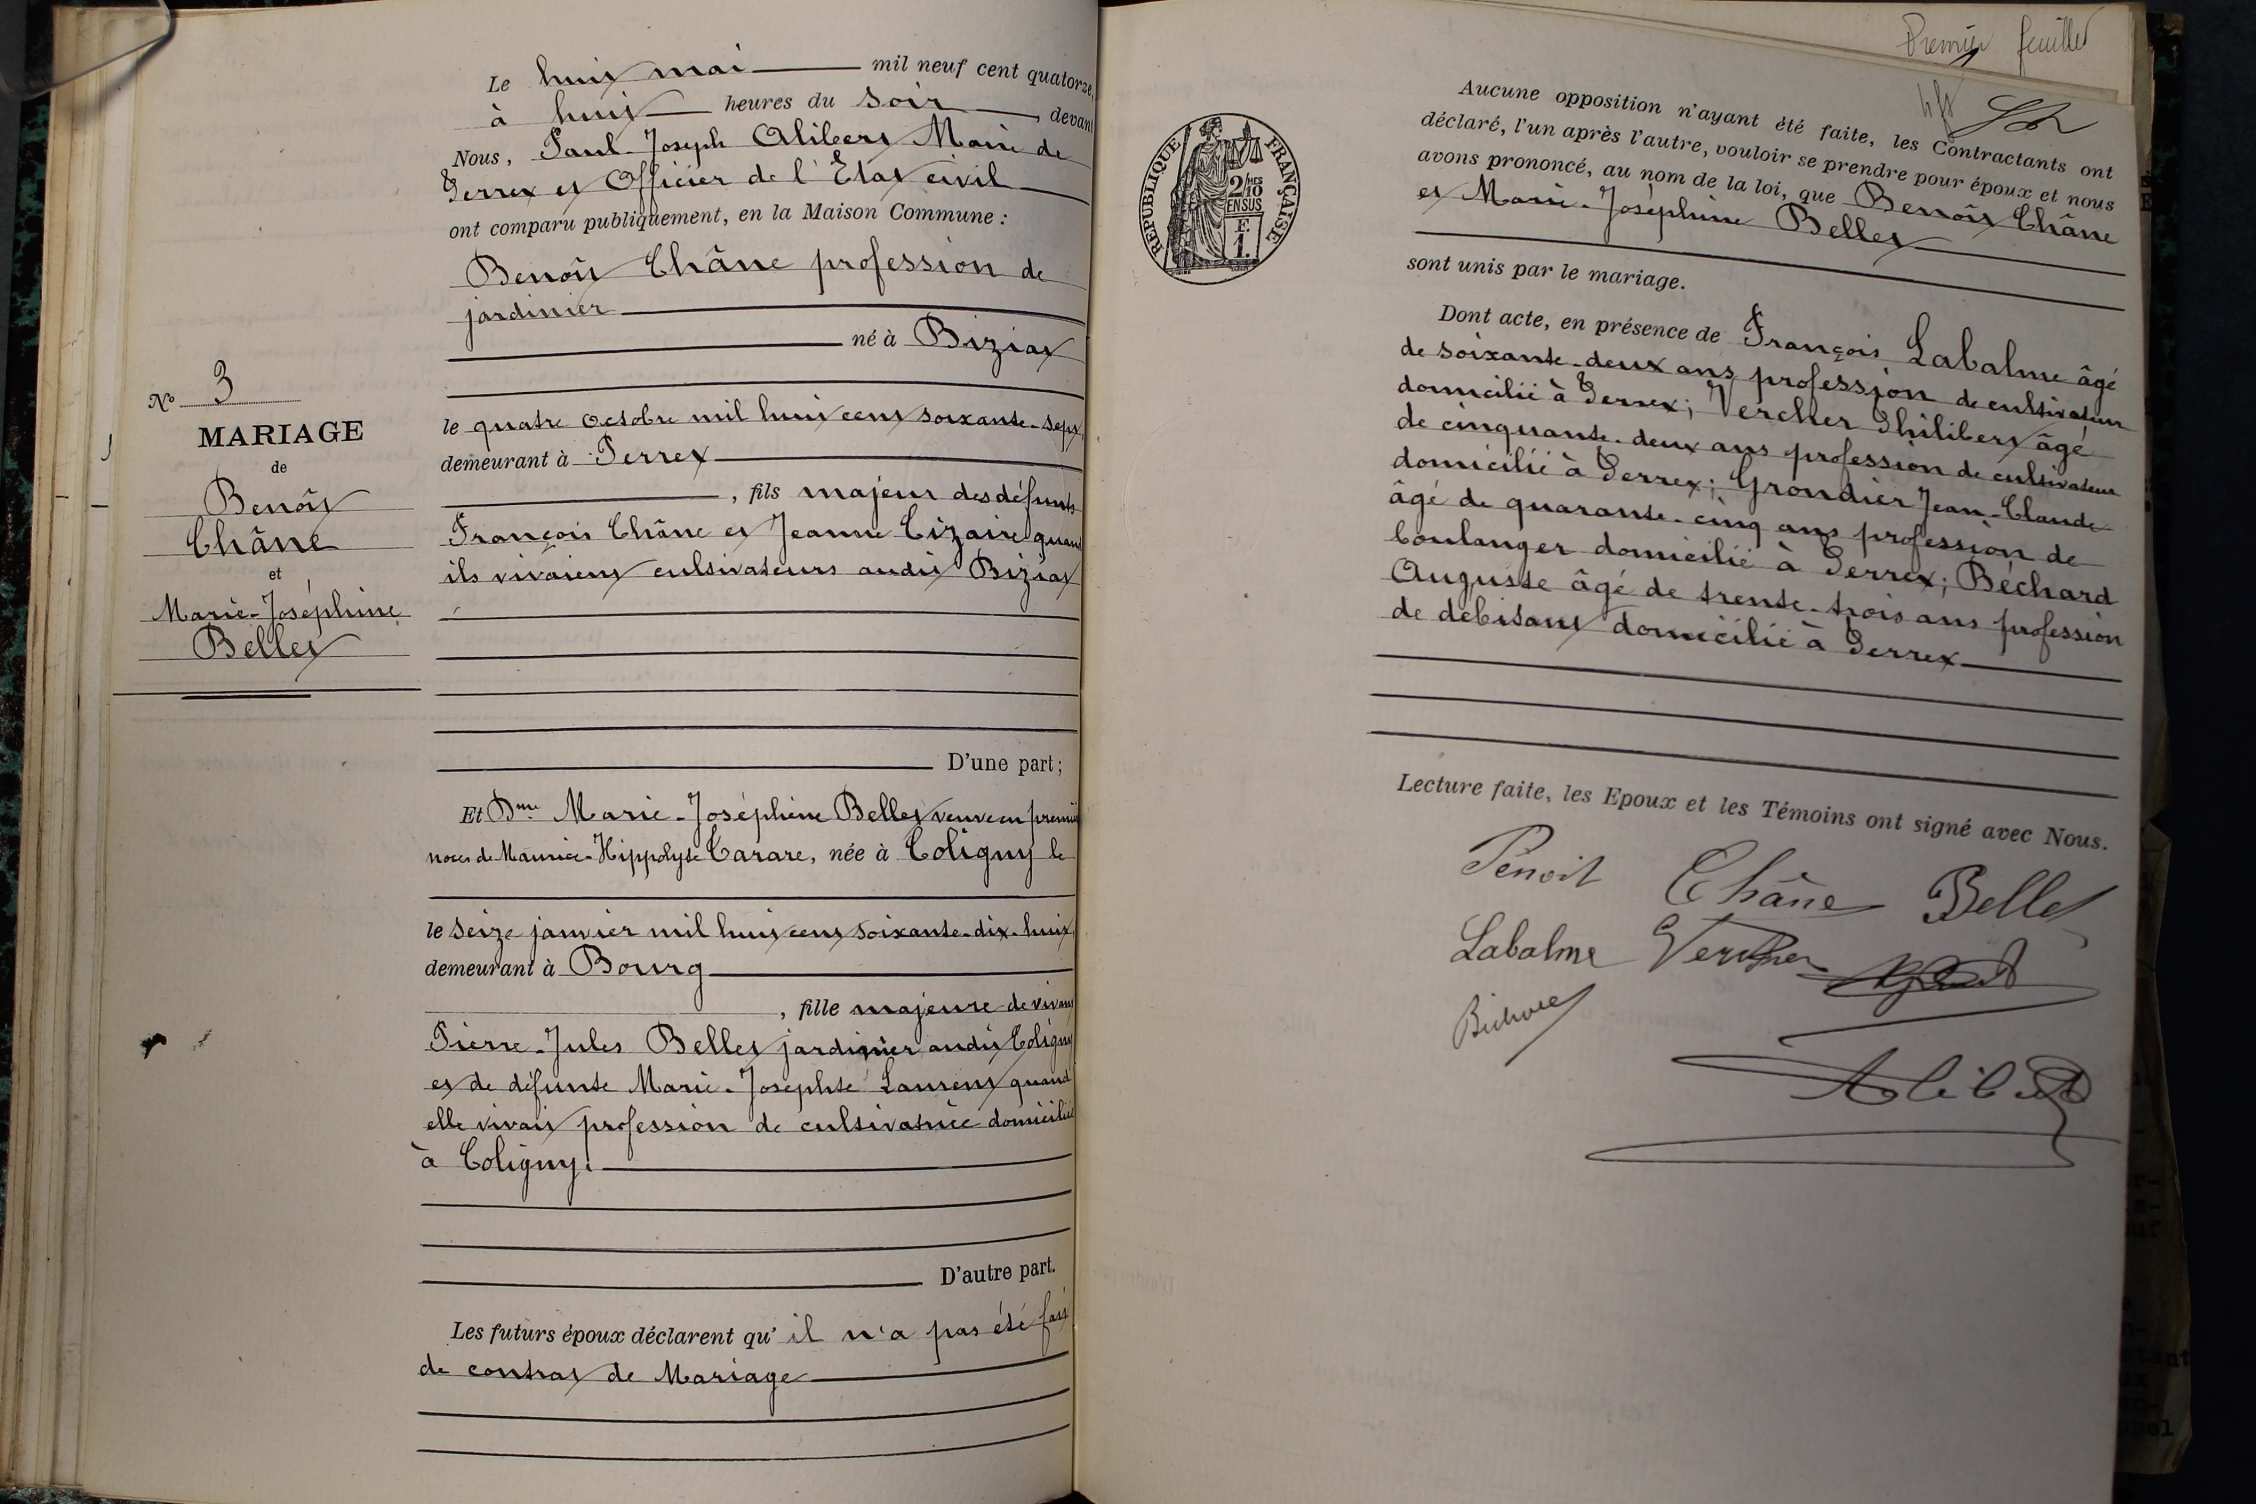 Le huit mai mil neuf cent quatorze,
à huit heures du soir, devant
Nous, Paul-Joseph Alibert Maire de
Perrex et Officier de l'Etat civil
ont comparu publiquement, en la Maison Commune :
Benoît Châne profession de
jardinier
né à Biziat
le quatre octobre mil huit cent soixante-sept,
demeurant à Perrex
, fils majeur des défunts
François Châne et Jeanne Cizaire quand
ils vivaient cultivateurs audit Biziat
D'une part ;
Et Dme Marie-Joséphine Bellet veuve en premières
noces de Maurice-Hippolyte Carare, née à Coligny le
le seize janvier mil huit cent soixante-dix-huit,
demeurant à Bourg
, fille majeure de vivant
Pierre-Jules Bellet jardinier audit Coligny
et de défunte Marie-Josephte Laurent quand
elle vivait profession de cultivatrice domiciliée
à Coligny.
D'autre part.
Les futurs époux déclarent qu'il n'a pas été fait
de contrat de Mariage
No 3
MARIAGE
de
Benoît
Châne
et
Marie-Joséphine
Bellet
Premier feuillet
RÉPUBLIQUE FRANÇAISE
2/10MES
EN SUS
F.
1.
Aucune opposition n'ayant été faite, les Contractants ont
déclaré, l'un après l'autre, vouloir se prendre pour époux et nous
avons prononcé, au nom de la loi, que Benoît Châne
et Marie-Joséphine Bellet
sont unis par le mariage.
Dont acte, en présence de François Labalme âgé
de soixante-deux ans profession de cultivateur
domicilié à Perrex; Vercher Philibert âgé
de cinquante-deux ans profession de cultivateur
domicilié à Perrex; Grondier Jean-Claude
âgé de quarante-cinq ans profession de
boulanger domicilié à Perrex; Béchard
Auguste âgé de trente-trois ans profession
de débitant domicilié à Perrex
Lecture faite, les Epoux et les Témoins ont signé avec Nous.
Benoit Châne Bellet
Labalme Vercher
Alibert